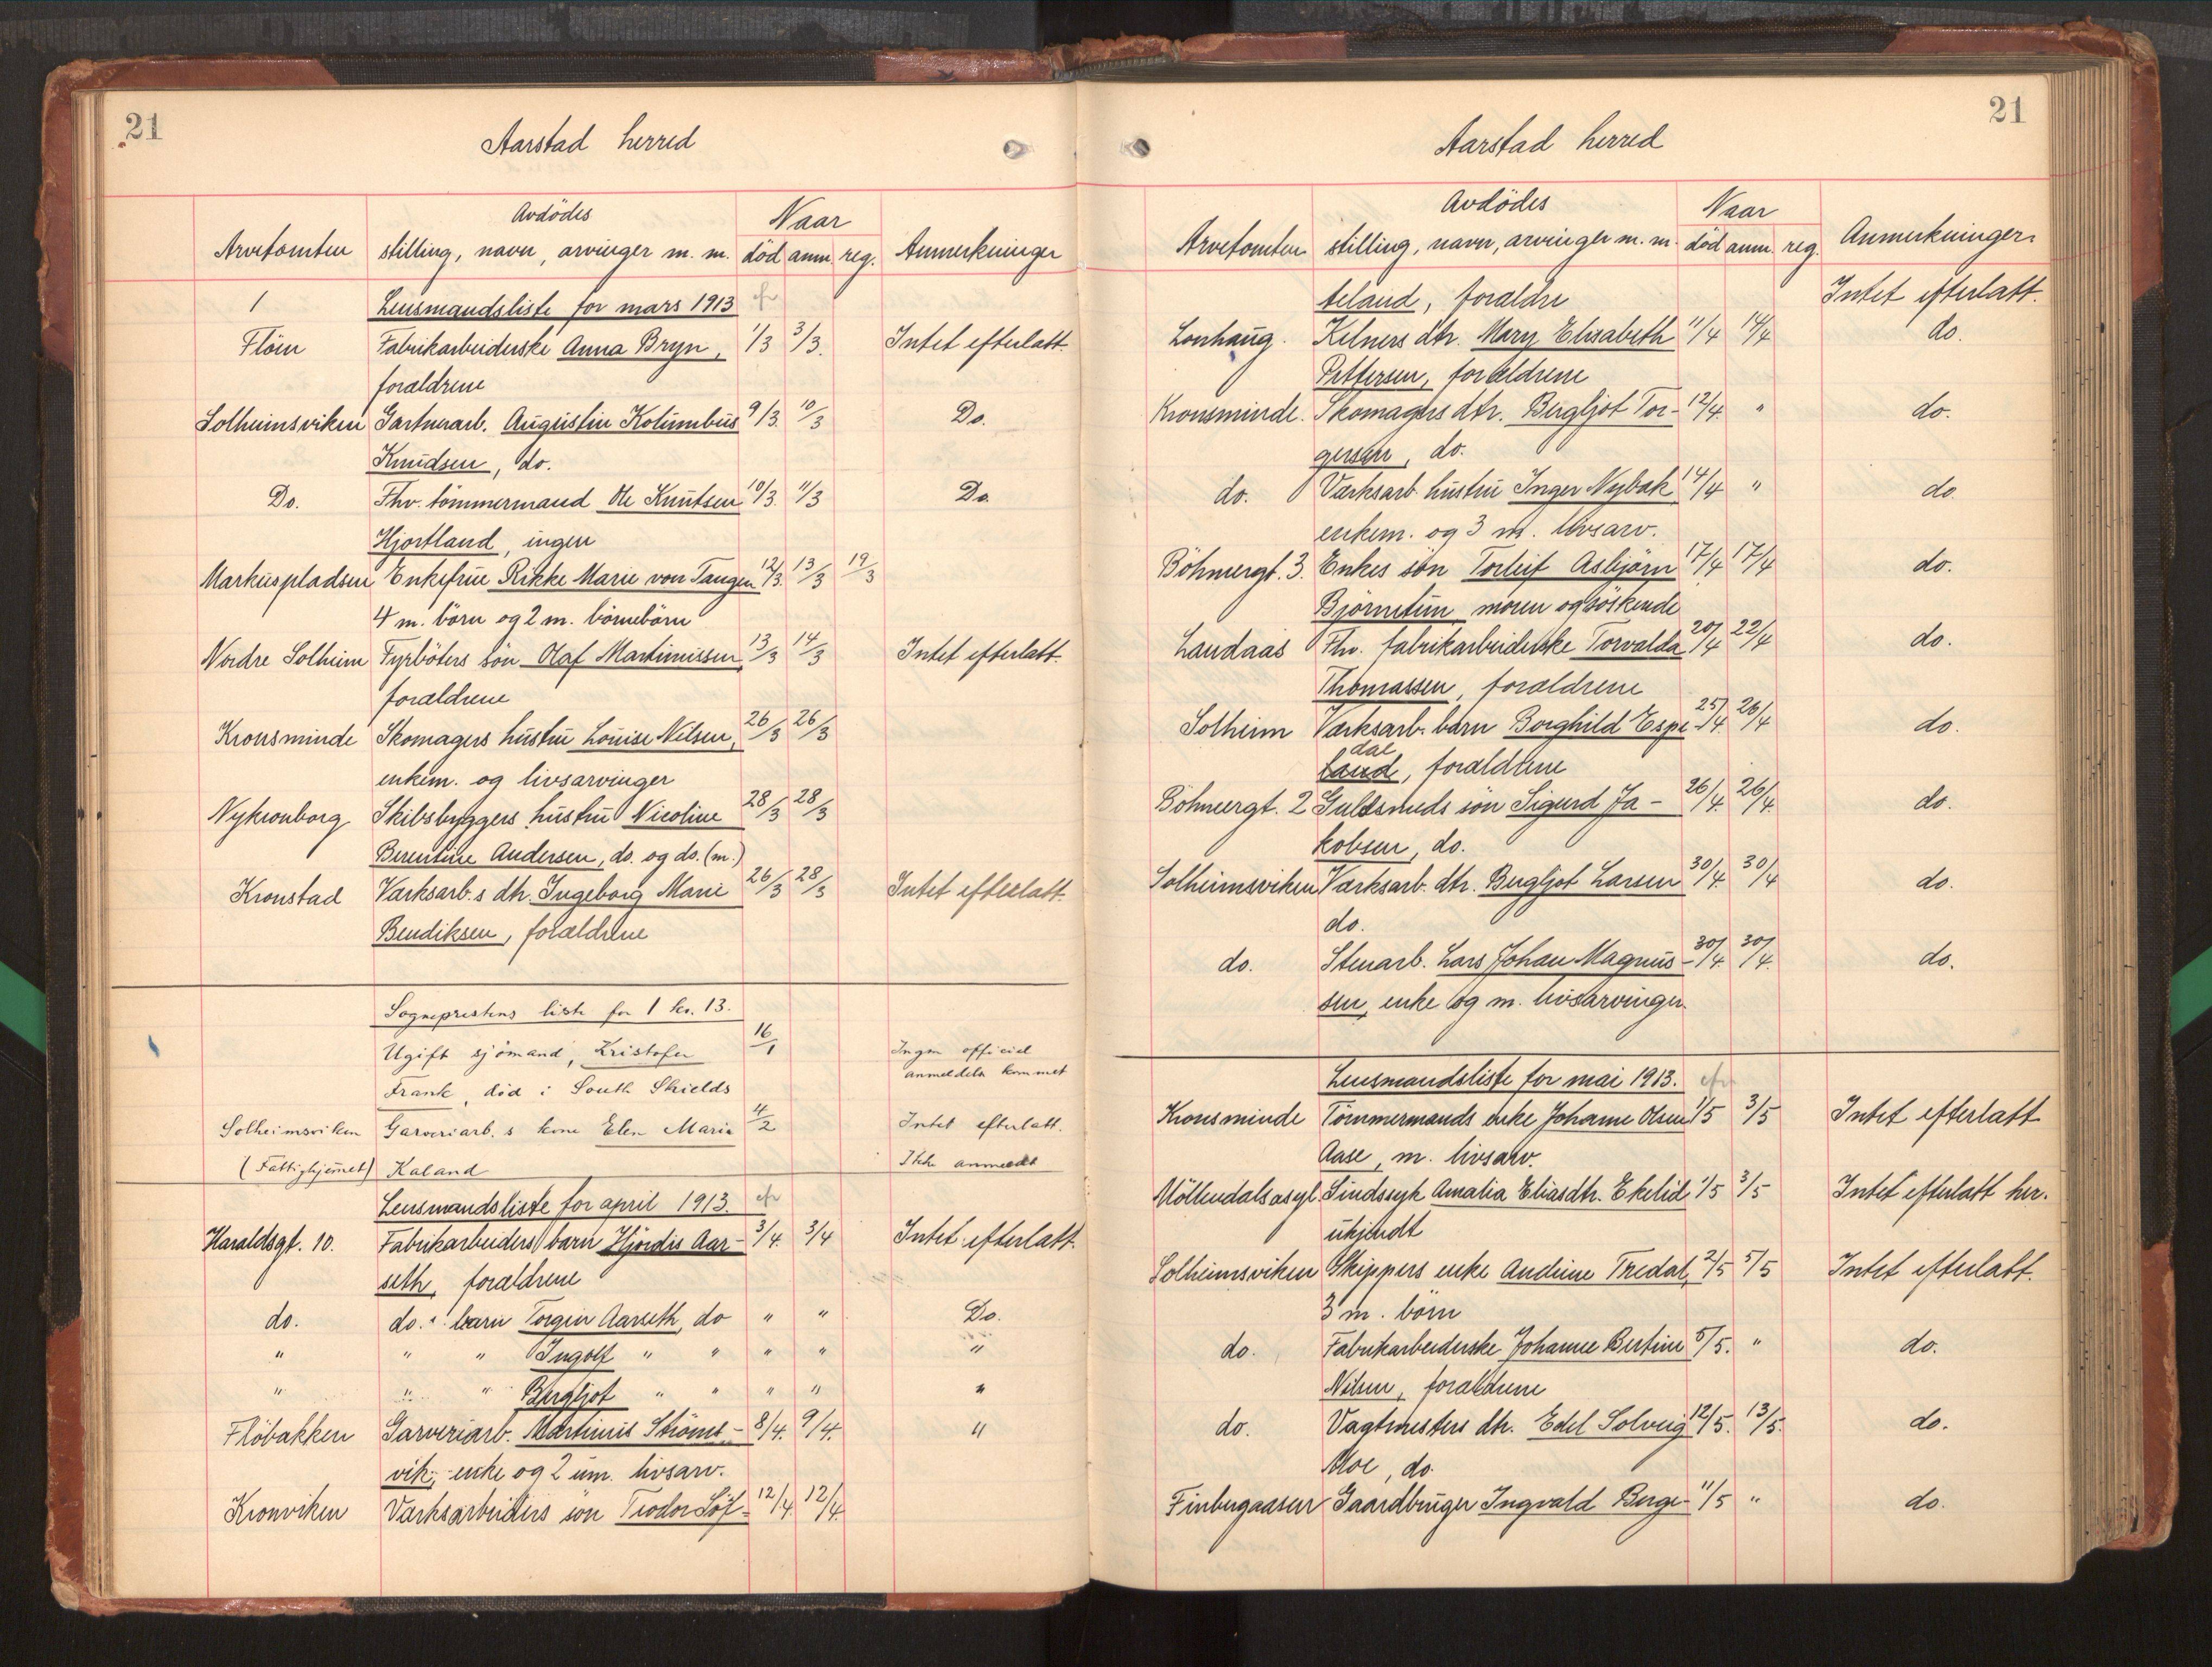 21
Aarstad herred
Avdödes
Naar
Arvetomten stilling, navn, arvinger m. m. död anm. reg. Anmerkninger
1 Lensmandsliste for mars 1913
Flöen Fabrikarbeiderske Anna Bryn, 1/3 3/3. Intet efterlatt.
forældrene
Solheimsviken Gartnerarb. Augustin Kolumbus 9/3. 10/3 Do.
Knudsen, do.
Do. Fhv. tömmermand Ole Knutsen 10/3. 11/3 Do.
Hjortland, ingen
Markuspladsen Enkefrue Rikke Marie von Tangen 12/3. 13/3 19/3
4 m. börn og 2 m. börnebörn
Nordre Solheim Fyrböters sön Olaf Martinussen, 13/3 14/3 Intet efterlatt.
forældrene
Kronsminde Skomagers hustru Louise Nilsen, 26/3 26/3
enkem. og livsarvinger
Nykronborg Skibsbyggers hustru Nicoline 28/3 28/3
Berentine Andersen, do. og do. (m.)
Kronstad Værksarb.s dtr. Ingeborg Marie 26/3 28/3 Intet efterlatt.
Bendiksen, forældrene
Sogneprestens liste for 1 kv. 13.
Ugift sjömand, Kristofer 16/1 Ingen officiel
anmeldelse kommet
Frank, död i South Shields
Solheimsviken Garveriarb.s kone Elen Marie 4/2 Intet efterlatt.
(Fattighjemmet) Kaland Ikke anmeldt
Lensmandsliste for april 1913.
Haraldsgt. 10. Fabrikarbeiders barn Hjördis Aar- 3/4. 3/4 Intet efterlatt.
seth, forældrene
do. do. " barn Torgin Aarseth, do " " Do.
" " " Ingolf " " " " "
" " " Bergljot " " " " "
Flöbakken Garveriarb. Martinus Ströms- 8/4. 9/4. "
vik, enke og 2 um. livsarv.
Kronviken Værksarbeiders sön Teodor Söf- 12/4. 12/4.
21
Aarstad herred
Avdödes
Naar
Arvetomten stilling, navn, arvinger m. m. död anm. reg. Anmerkninger.
teland, forældre Intet efterlatt.
Lonhaug. Kelners dtr. Mary Elisabeth 11/4 14/4 do.
Pettersen, forældrene
Kronsminde. Skomagers dtr. Bergljot Tor- 12/4. " do.
gersen, do.
do. Værksarb. hustru Inger Nybak 14/4 " do.
enkem. og 3 m. livsarv.
Böhmergt. 3. Enkes sön Torleif Asbjörn 17/4 17/4 do.
Björnetun, moren og söskende
Landaas Fhv. fabrikarbeiderske Torvalda 20/4 22/4 do.
Thomassen, forældrene
Solheim Værksarb. barn Borghild Espe- 25/4. 26/4 do.
dal
land, forældrene
Böhmergt. 2 Guldsmeds sön Sigurd Ja- 26/4. 26/4. do.
kobsen, do.
Solheimsviken Værksarb. dtr. Bergljot Larsen 30/4. 30/4 do.
do.
do. Stenarb. Lars Johan Magnus- 30/4. 30/4. do.
sen, enke og m. livsarvinger.
Lensmandsliste for mai 1913.
Kronsminde Tömmermands enke Johanne Olsen 1/5 3/5 Intet efterlatt
Aase, m. livsarv.
Möllendalsasyl. Sindssyk Amalia Eliasdtr. Ekelid 1/5 3/5 Intet efterlatt her.
ukjendt
Solheimsviken Skippers enke Andrine Tredal, 2/5 5/5 Intet efterlatt.
3 m. börn
do. Fabrikarbeiderske Johanne Bertine 5/5. " do.
Nilsen, forældrene
do. Vagtmesters dtr. Edel Solveig 12/5. 13/5. do.
Moe, do.
Finbergaasen Gaardbruger Ingvald Berge- 11/5 " do.